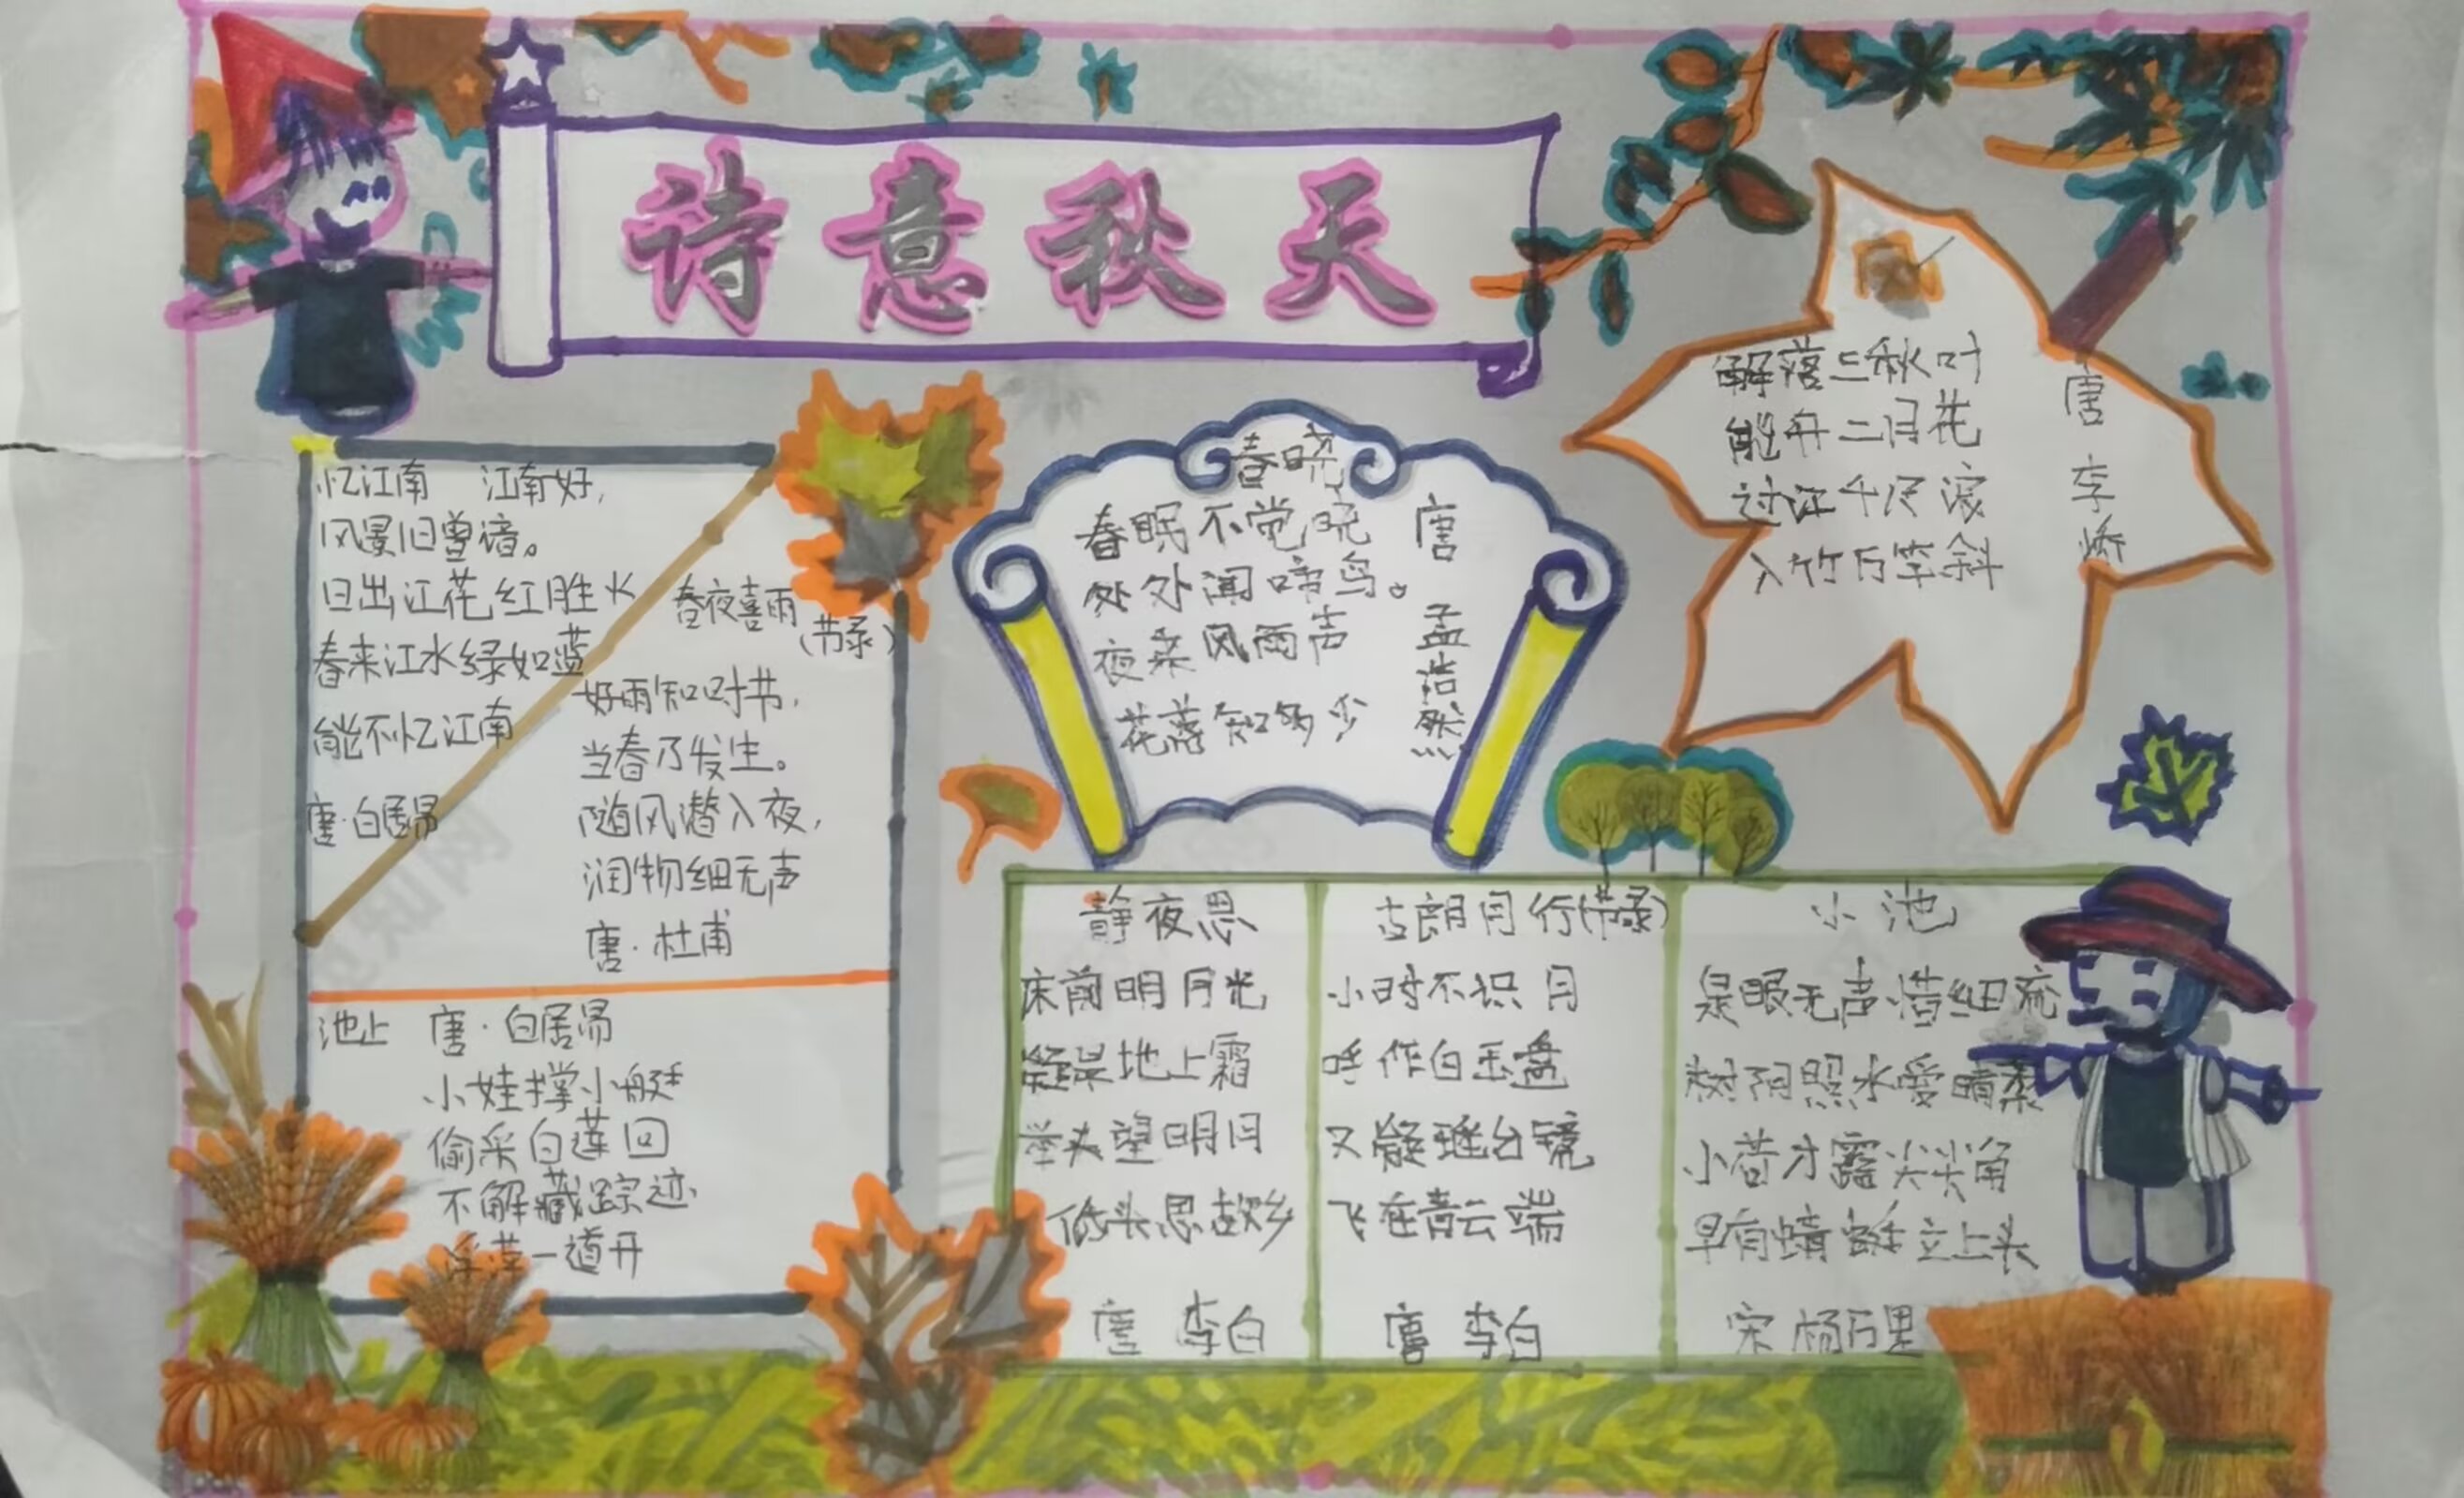 诗意秋天
忆江南 江南好,
风景旧曾谙。
日出江花红胜火
春来江水绿如蓝
能不忆江南
唐·白居易
春夜喜雨
(节录)
好雨知时节,
当春乃发生。
随风潜入夜,
润物细无声
唐·杜甫
池上 唐·白居易
小娃撑小艇
偷采白莲回
不解藏踪迹
浮萍一道开
春晓
春眠不觉晓
处处闻啼鸟。
夜来风雨声
花落知多少
唐 孟浩然
解落三秋叶
能开二月花
过江千尺浪
入竹万竿斜
唐 李峤
静夜思
床前明月光
疑是地上霜
举头望明月
低头思故乡
唐 李白
古朗月行(节录)
小时不识月
呼作白玉盘
又疑瑶台镜
飞在青云端
唐 李白
小池
泉眼无声惜细流
树阴照水爱晴柔
小荷才露尖尖角
早有蜻蜓立上头
宋 杨万里